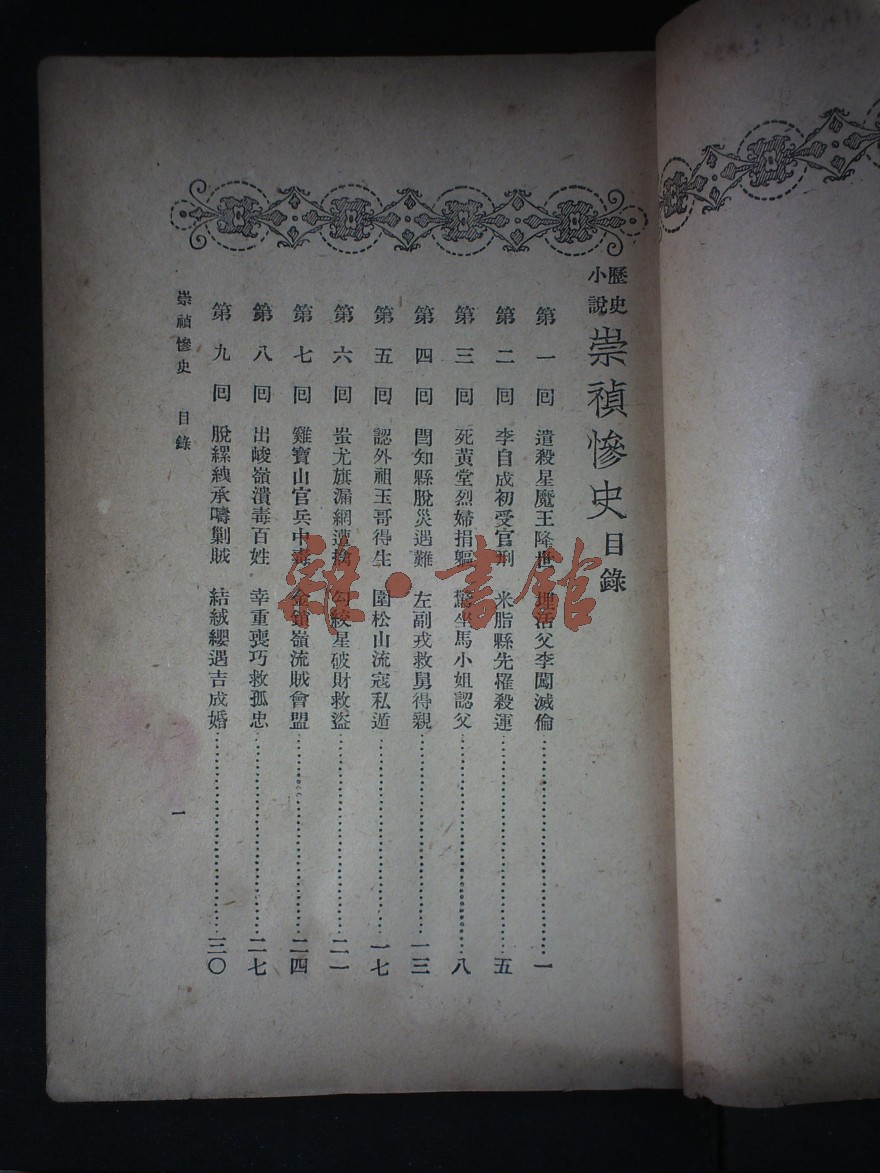 歷史小說 崇禎慘史目錄
第一回 遣殺星魔王降世 埋活父李闖滅倫 一
第二回 李自成初受官刑 米脂縣先罹殺運 五
第三回 死黃堂烈婦捐軀 驚坐馬小姐認父 八
第四回 閆知縣脫災遇難 左副戎救舅得親 一三
第五回 認外祖玉哥得生 圍松山流寇私遁 一七
第六回 蚩尤旗漏網遭擒 勾絞星破財救盜 二一
第七回 雞寶山官兵中毒 金鎖嶺流賊會盟 二四
第八回 出峻嶺潰毒百姓 幸重喪巧救孤忠 二七
第九回 脫縲絏承嗣剿賊 結絨纓遇吉成婚 三〇
崇禎慘史 目錄 一
雜·書館